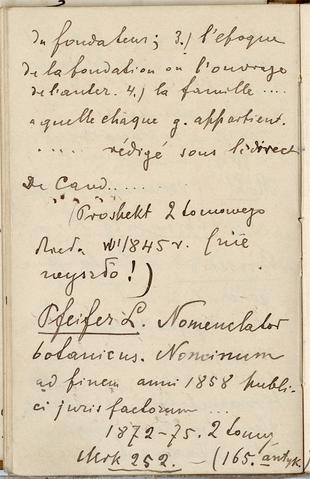 du fondateur; 3.) l'epoque
de la fondation ou l'ouvrage
de l'auter. 4.) la famille ....
a quelle chaque g. appartient.
..... rédigé sous le direct
De Cand......
(Proshekt 2 tomowego
dzieła w 1845 r. (nie
wyszło!)
Pfeifer L. Nomenclator
botanicus. Nominum
ad finem anni 1858 publi-
ci juris factorum ...
1872-75. 2 tomy
Mrk 252. — (165. antyk.)